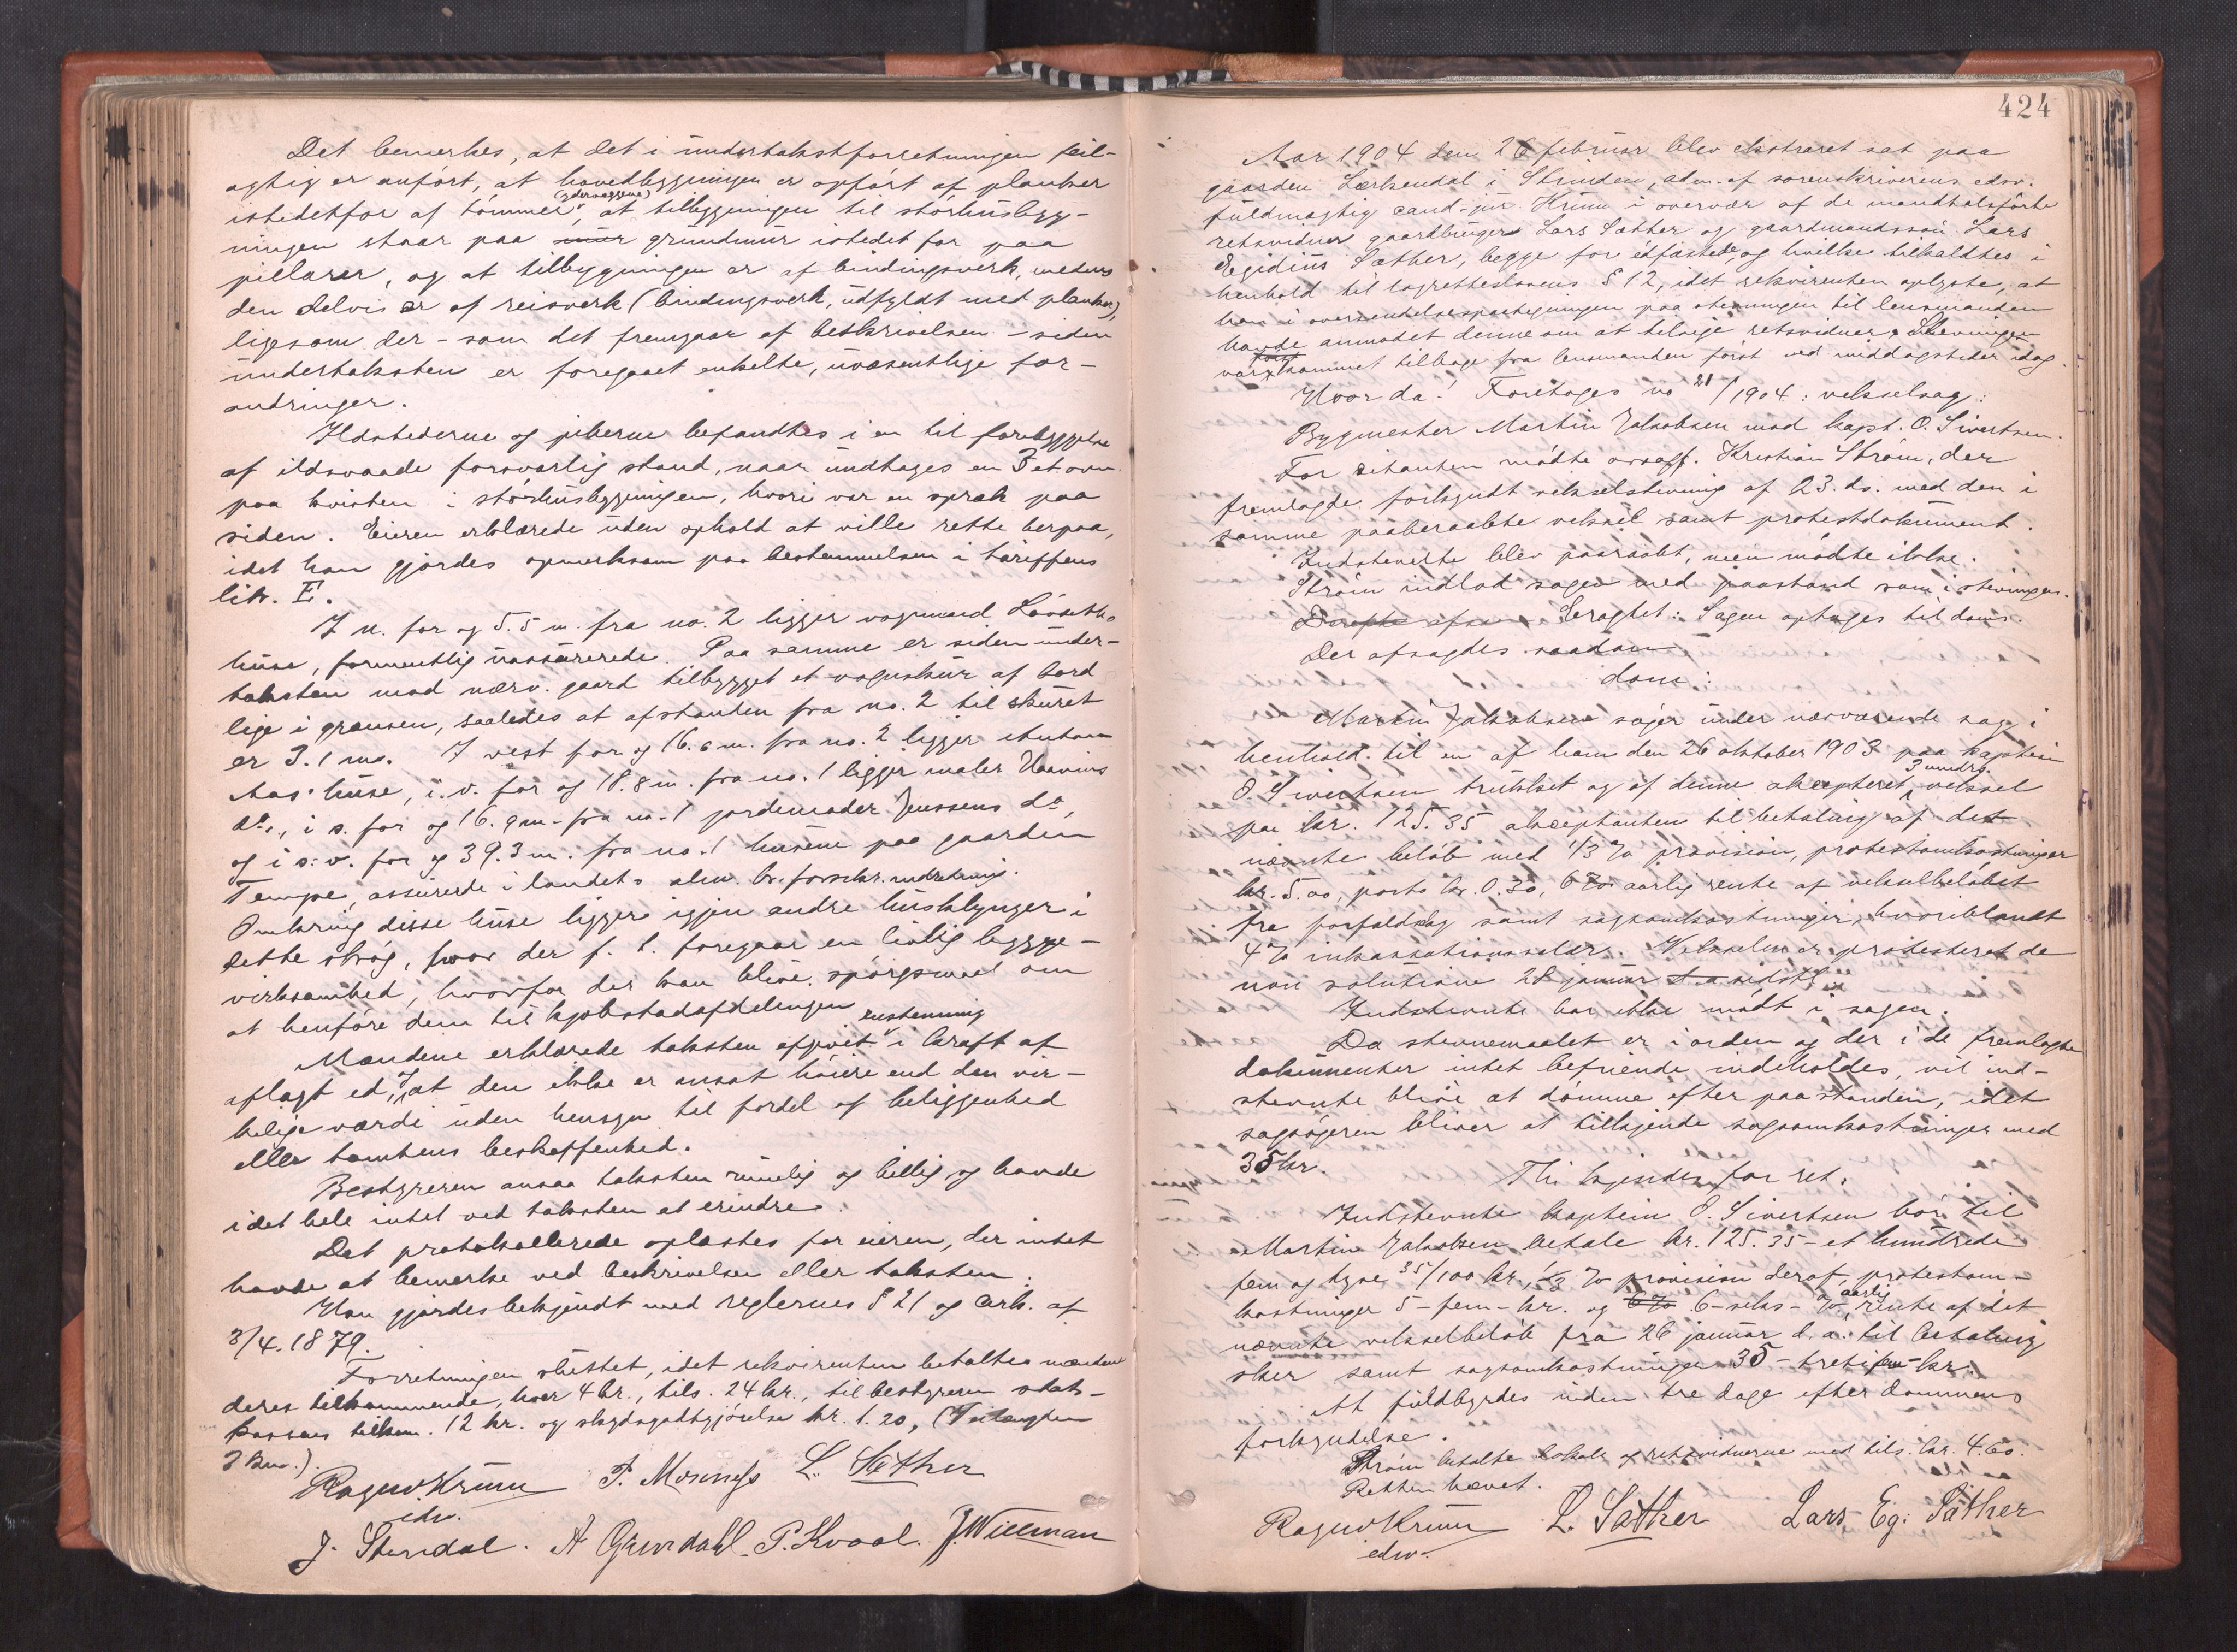 Det bemerkes, at det i undertakstforretningen feil-
agtig er anført, at hovedbygningen er opført af planker
(ydervæggene)
istedetfor af tømmer, at tilbygningen til størhusbyg-
ningen staar paa mur grundmur istedet for paa
pillarer, og at tilbygningen er af bindingsverk, medens
den delvis er af reisverk (bindingsverk, udfyldt med planker),
ligesom der - som det fremgaar af beskrivelsen - siden
undertaksten er foregaaet enkelte, uvæsentlige for-
andringer.
Ildstederne og piberne befandtes i en til forebyggelse
af ildsvaade forsvarlig stand, naar undtages en 3 et. ovn
paa kvisten i størhusbygningen, hvori var en spræk paa
siden. Eieren erklærede uden ophold at ville rette herpaa,
idet han gjordes opmerksom paa bestemmelsen i tariffens
litr. E.
I n. for og 5.5 m. fra no. 2 ligger vognmand
huse, formentlig uassurerede. Paa samme er siden under-
taksten mod nærv. gaard tilbygget et vognskur af bord
lige i grænsen, saaledes at afstanden fra no. 2 til skuret
er 3.1 m. I vest for og 16.6 m. fra no. 2 ligger
Aas' huse, i v. for og 18.8 m. fra no. 1 ligger maler
do., i s. for og 16.9 m. fra no. 1 jordemoder Jenssens do,
og i s.v. for og 39.3 m. fra no. 1 husene paa gaarden
Tempe, assurerede i landets alm. br. forsikr. indretning.
Omkring disse huse ligger igjen andre husklynger i
dette strøg, hvor der f. t. foregaar en livlig bygge-
virksomhed, hvorfor der kan blive spørgsmaal om
at henføre dem til kjøbstadafdelingen
enstemmig
Mændene erklærede taksten afgivet i kraft af
aflagt ed, og at den ikke er ansat høiere end den vir-
kelige værdi uden hensyn til fordel af beliggenhed
eller tomtens beskaffenhed.
Bestyreren ansaa taksten rimelig og billig og havde
i det hele intet ved taksten at erindre.
Det protokollerede oplæstes for eieren, der intet
havde at bemerke ved beskrivelsen eller taksten.
Han gjordes bekjendt med reglernes § 21 og cirk. af
3/4. 1879.
Forretningen sluttet, idet rekvirenten betalte mændene
deres tilkommende, hver 4 kr., tils. 24 kr., til bestyreren stats-
kassens tilkom. 12 kr. og skydsgodtgjørelse kr. 1.20,
3 km.).
Ragnv Krum T. Mosness L. Sæther
edsv.
J. Stendal. A Grendahl. P. Kvaal. J. Willman
424
Aar 1904 den 26 februar blev ekstraret sat paa
gaarden Lerkendal i Strinden, adm. af sorenskriverens edsv.
fuldmægtig cand. jur. Krum i overvær af de mandtalsførte
retsvidner gaardbruger Lars Sæther og gaardmandssøn Lars
Egidius Sæther, begge før edfæstede, og hvilke tilkaldtes i
henhold til lagretteslovens § 12, idet rekvirenten oplyste, at
han i oversendelsespaategningen paa stevningen til lensmanden
havde anmodet denne om at tilsige retsvidner. Stevningen
var kommet tilbage fra lensmanden først ved middagstider idag.
Hvor da: Foretoges no 21/1904: vekselsag:
Bygmester Martin Jakobsen mod kapt. O. Sivertsen.
For citanten mødte ovrsagf. Kristian Strøm, der
fremlagde forkyndt vekselstevning af 23. ds. med den i
samme paaberaabte veksel samt protestdokument.
Indstevnte blev paaraabt, men mødte ikke.
Strøm indlod sagen med paastand som i stevningen.
Derefter afsa Eragtet: Sagen optages til doms.
Der afsagdes saadan
dom:
Martin Jakobsen søger under nærværende sag i
henhold til en af ham den 26 oktober 1903 paa kaptein
3 mndrs.
O. Sivertsen trukket og af denne akcepteret veksel
paa kr. 125.35 akceptanten til betaling af det
nævnte beløb med 1/3 % provision, protestomkostninger
kr. 5.00, porto kr. 0.30, 6 % aarlig rente af vekselbeløbet
fra forfaldsdag samt sagsomkostninger, hvoriblandt
4 % inkassationssalær. Vekselen er protesteret de
non solutione 28 januar d. a. sidstl.
Indstevnte har ikke mødt i sagen.
Da stevnemaalet er i orden og der i de fremlagte
dokumenter intet befriende indeholdes, vil ind-
stevnte blive at dømme efter paastanden, idet
sagsøgeren bliver at tilkjende sagsomkostninger med
35 kr.
Thi kjendes for ret:
Indstevnte kaptein O. Sivertsen bør til
Martin Jakobsen betale kr. 125.35 - et hundrede
fem og tyve 35/100 kr., 1/3 % provision deraf, protestom-
kostninger 5 - fem - kr. og 6 % 6 - seks - % aarlig rente af det
nævnte vekselbeløb fra 26 januar d. a. til betaling
sker samt sagsomkostninger 35 - treti fem - kr.
At fuldbyrdes inden tre dage efter dommens
forkyndelse.
Strøm betalte lokale og retsvidnerne med tils. kr. 4.60.
Retten hævet.
Ragnv Krum L. Sæther Lars Eg. Sæther
edsv.